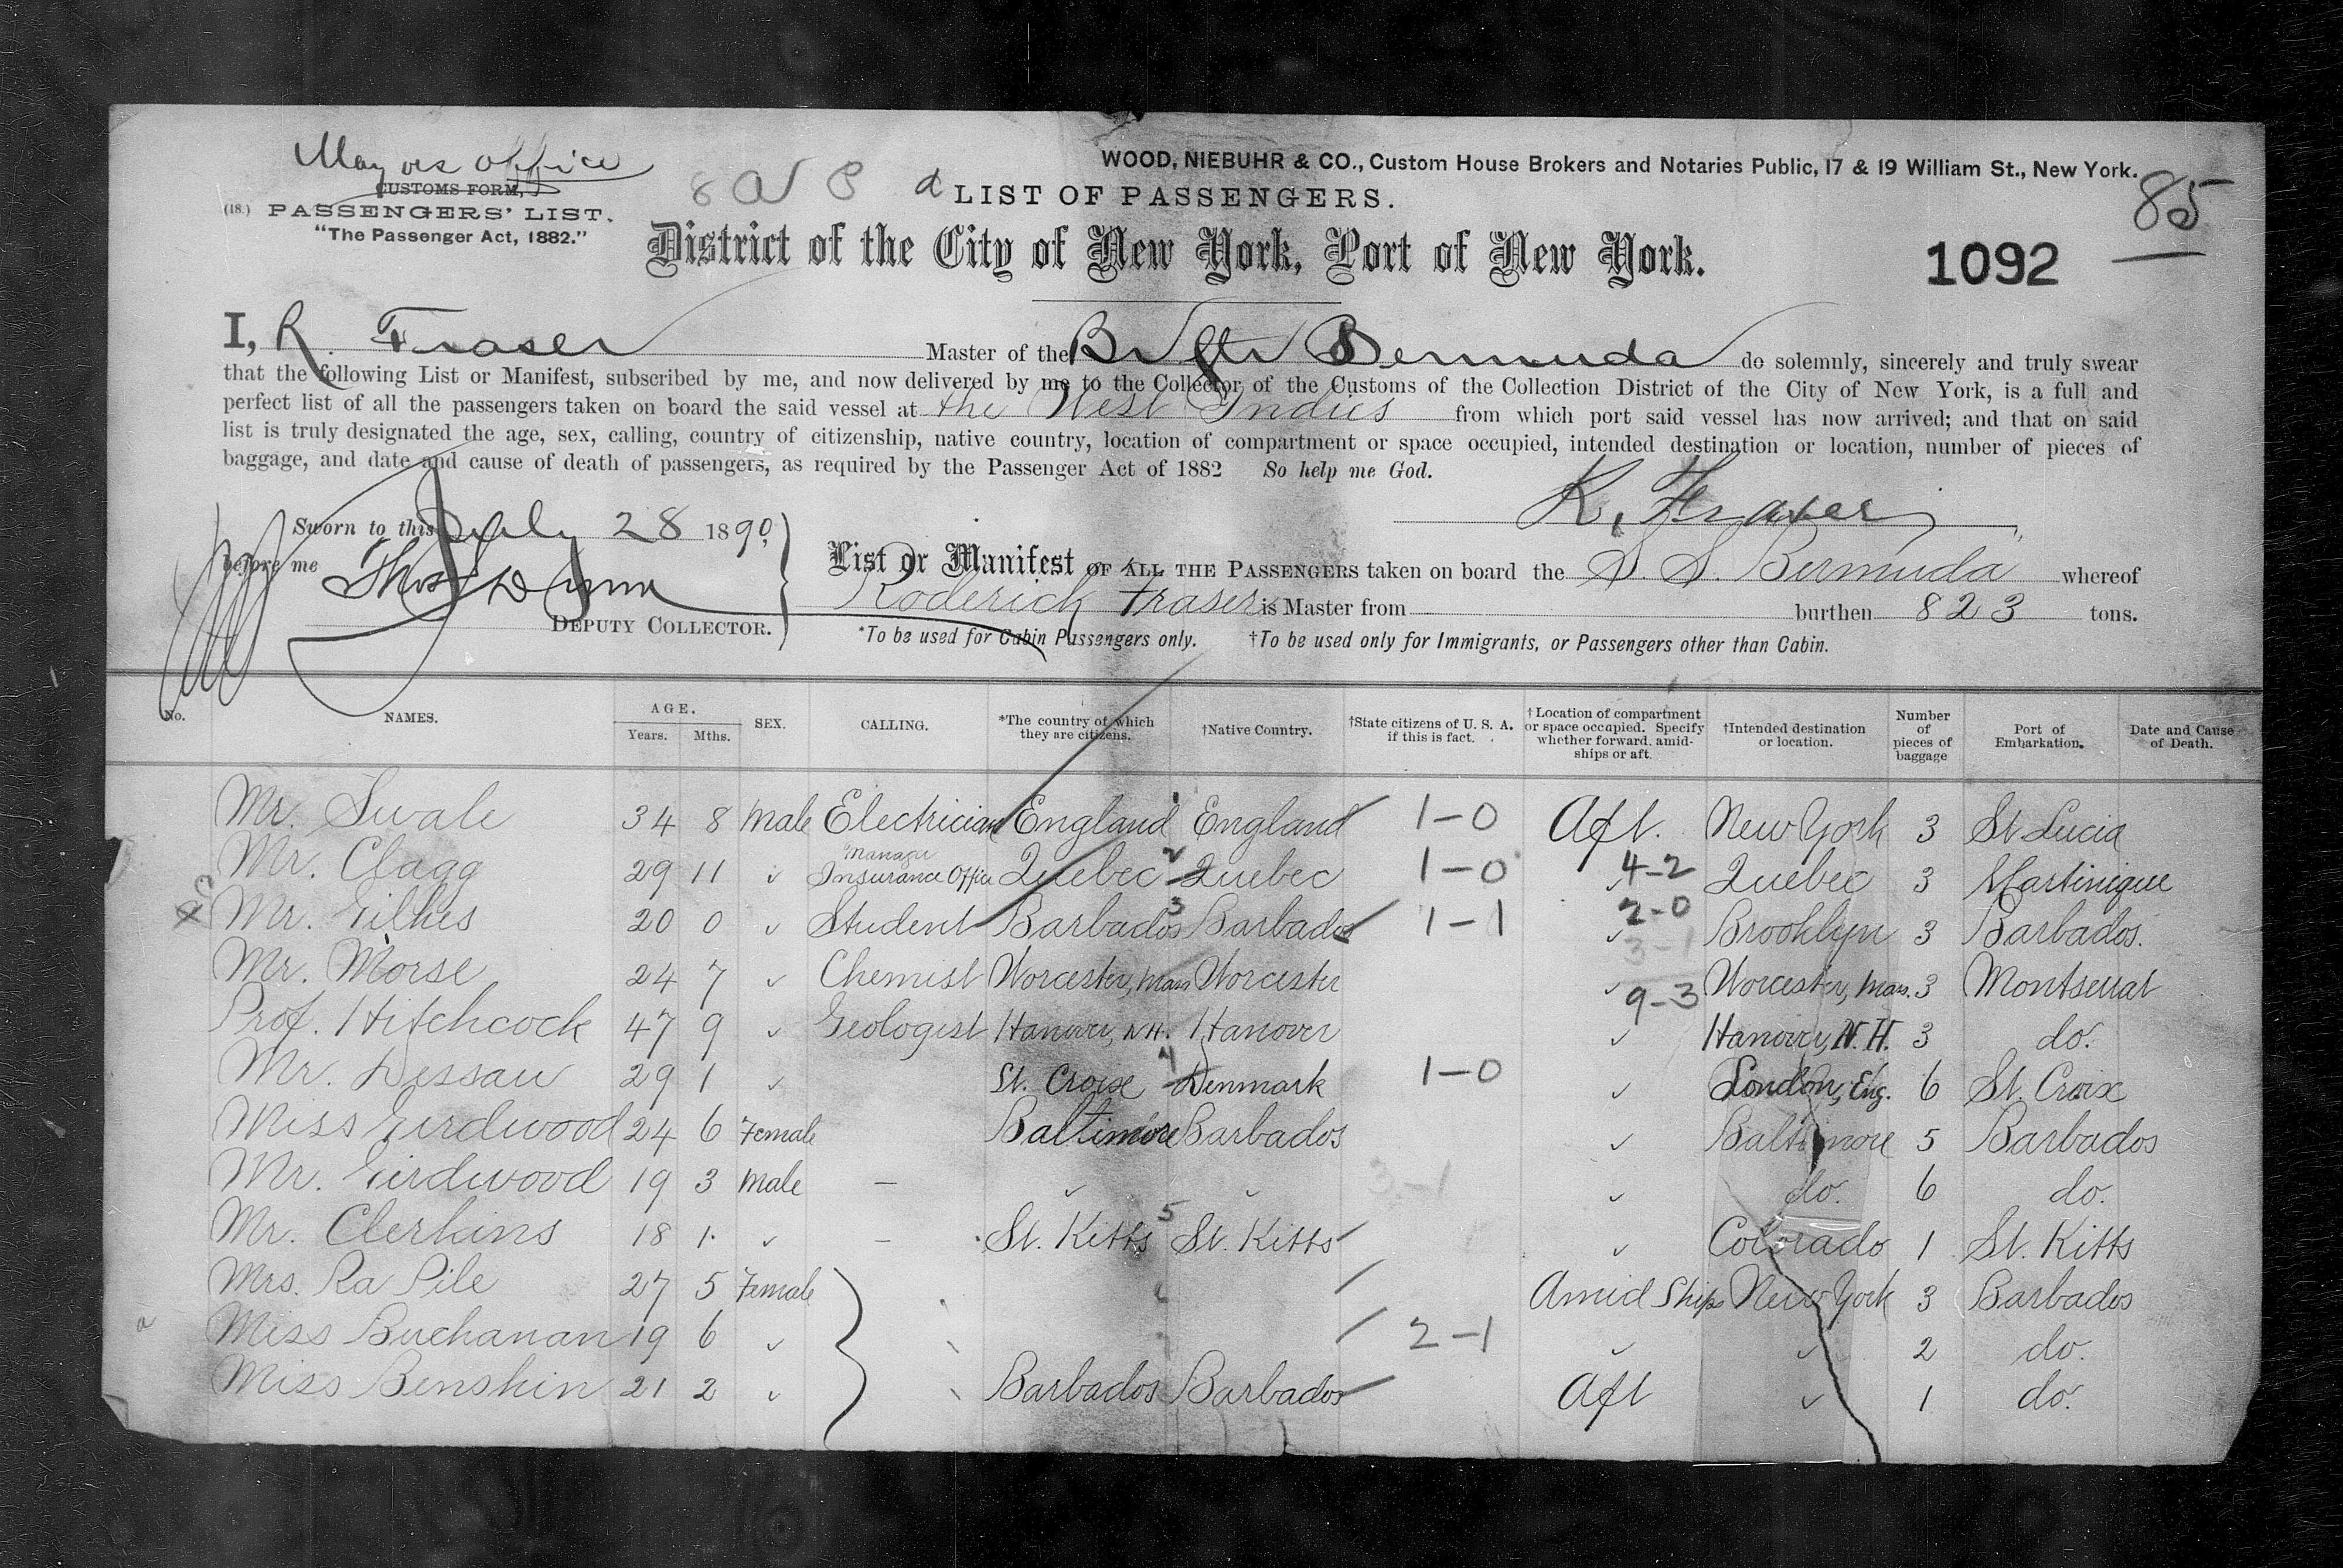 Mayors office
WOOD, NIEBUHR & CO., Custom House Brokers and Notaries Public, 17 & 19 William St., New York.
CUSTOMS FORM,
85
(18.) PASSENGERS' LIST.
LIST OF PASSENGERS.
"The Passenger Act, 1882."
District of the City of New York, Port of New York.
1092
I, R. Fraser Master of the Br Str Bermuda do solemnly, sincerely and truly swear
that the following List or Manifest, subscribed by me, and now delivered by me to the Collector of the Customs of the Collection District of the City of New York, is a full and
perfect list of all the passengers taken on board the said vessel at the West Indies from which port said vessel has now arrived; and that on said
list is truly designated the age, sex, calling, country of citizenship, native country, location of compartment or space occupied, intended destination or location, number of pieces of
baggage, and date and cause of death of passengers, as required by the Passenger Act of 1882 So help me God.
R. Fraser
Sworn to this July 28 1890,
before me Thos Dunn
DEPUTY COLLECTOR.
List or Manifest OF ALL THE PASSENGERS taken on board the S. S. Bermuda whereof
Roderick Fraser is Master from burthen 823 tons.
*To be used for Cabin Passengers only. †To be used only for Immigrants, or Passengers other than Cabin.
No. NAMES. AGE. Years. Mths. SEX. CALLING. *The country of which they are citizens. †Native Country. †State citizens of U. S. A. if this is fact. †Location of compartment or space occupied. Specify whether forward, amidships or aft. †Intended destination or location. Number of pieces of baggage Port of Embarkation. Date and Cause of Death.
Mr. Swale 34 8 Male Electrician England England 1-0 Aft. New York 3 St Lucia
Mr. Clagg 29 11 ✓ Manager Insurance Office Quebec 2 Quebec 1-0 ✓ 4-2 Quebec 3 Martinique
Mr. Gilkes 20 0 ✓ Student Barbados 3 Barbados 1-1 ✓ 2-0 Brooklyn 3 Barbados.
Mr. Morse 24 7 ✓ Chemist Worcester, Mass Worcester ✓ 3-1 Worcester, Mass. 3 Montserrat
Prof. Hitchcock 47 9 ✓ Geologist Hanover, N.H. Hanover 9-3 ✓ Hanover, N.H. 3 do.
Mr. Dessau 29 1 ✓ St. Croix 4 Denmark 1-0 ✓ London, Eng. 6 St. Croix
Miss Girdwood 24 6 Female Baltimore Barbados ✓ Baltimore 5 Barbados
Mr. Girdwood 19 3 Male — ✓ ✓ 3-1 ✓ do. 6 do.
Mr. Clerkins 18 1 ✓ — St. Kitts 5 St. Kitts ✓ Colorado 1 St. Kitts
Mrs. Ra Pile 27 5 Female Amid Ships New York 3 Barbados
Miss Buchanan 19 6 ✓ 2-1 ✓ ✓ 2 do.
Miss Benshin 21 2 ✓ Barbados Barbados Aft ✓ 1 do.